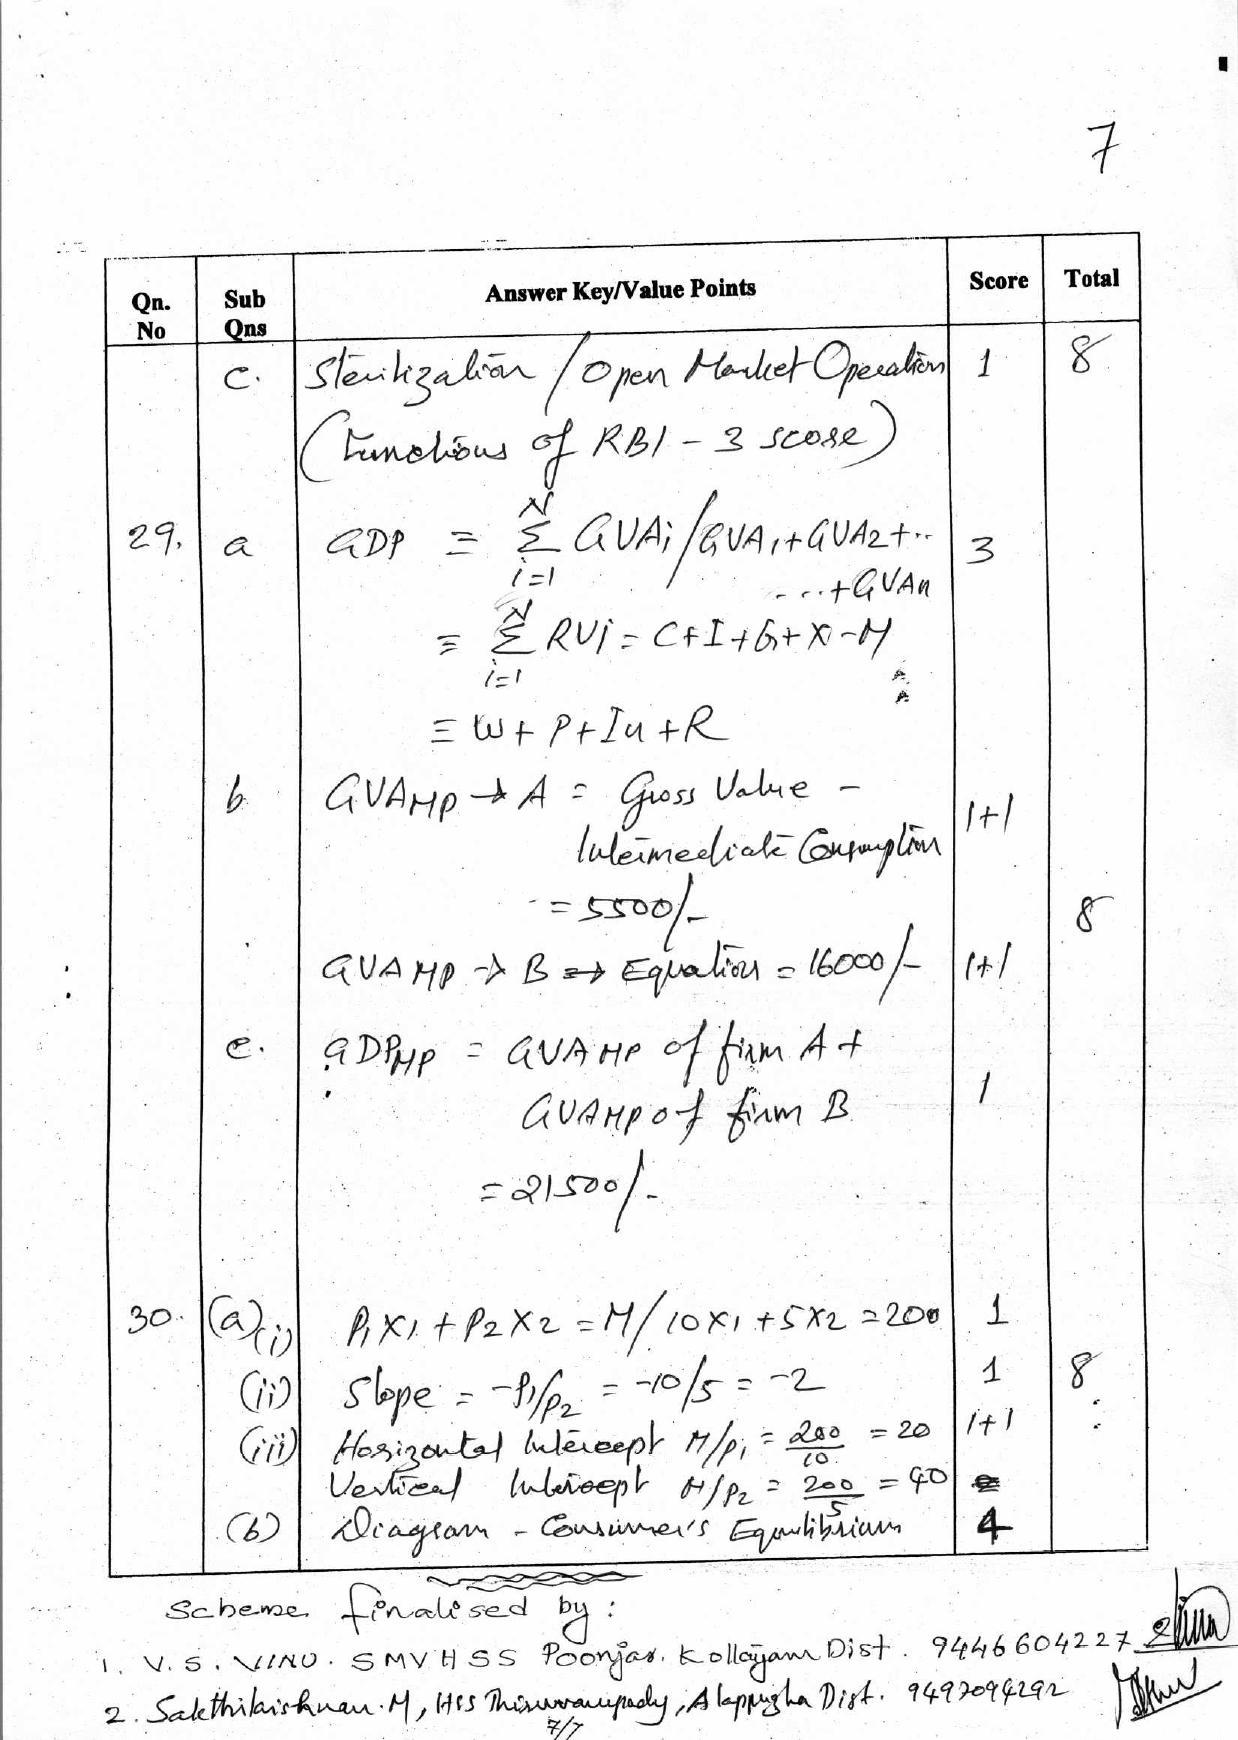 7
Qn. No Sub Qns Answer Key/Value Points Score Total
c. Sterilization / Open Market Operations 1 8
(Functions of RBI - 3 score)
29. a GDP ≡ N Σ i=1 GVAi / GVA1 + GVA2 + .. 3
...+GVAn
≡ N Σ i=1 RVi = C+I+G+X-M
≡ W + P + In + R
b GVAMP → A = Gross Value - 1+1
Intermediate Consumption
= 5500/-
8
GVAMP → B ⇒ Equation = 16000/- 1+1
c. GDPMP = GVAMP of firm A +
GVAMP of firm B 1
= 21500/-
30. (a) (i) P1X1 + P2X2 = M / 10X1 + 5X2 = 200 1
(ii) Slope = -P1/P2 = -10/5 = -2 1 8
(iii) Horizontal Intercept M/P1 = 200/10 = 20 1+1
Vertical Intercept M/P2 = 200/5 = 40
(b) Diagram - Consumer's Equilibrium 4
Scheme finalised by :
1. V. S. VINU. SMVHSS Poonjar. Kottayam Dist. 9446604227
2. Sakthikrishnan. M, HSS Thiruvampady, Alappuzha Dist. 9497094292
7/7